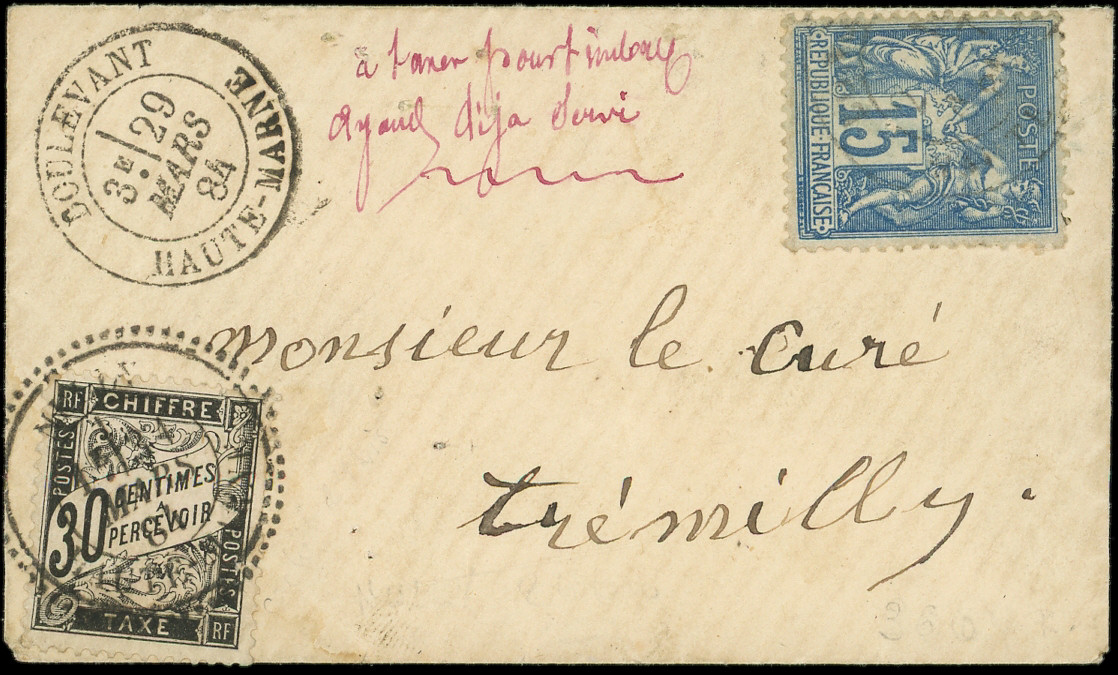 DOULEVANT
3E 29
MARS
84
HAUTE-MARNE
à taxer pour timbre
ayant déja servi
REPUBLIQUE FRANÇAISE
15
POSTE
Monsieur le Curé
trémilly.
RF CHIFFRE
POSTES
30 CENTIMES
À
PERCEVOIR
POSTES
TAXE RF
MARS